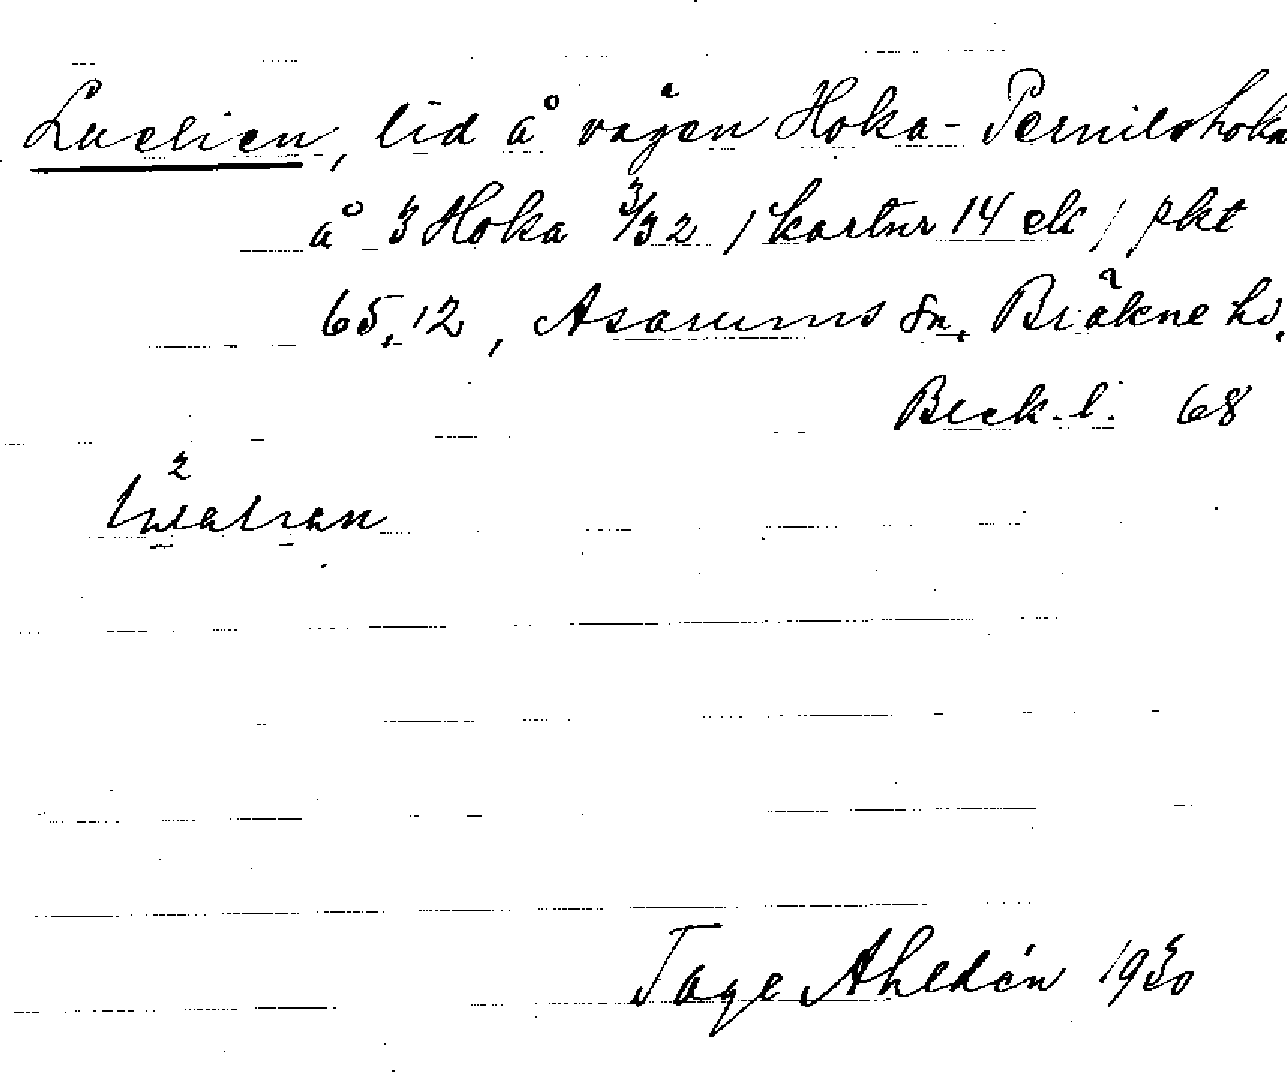 Luelien, lid å vägen Hoka - Pernilshoka
å 3 Hoka 3/32 / kartur 14 ek / pkt
65,12, Asarums sn. Bräkne hd.
Bleck. l. 68
Tage Ahldén 1930